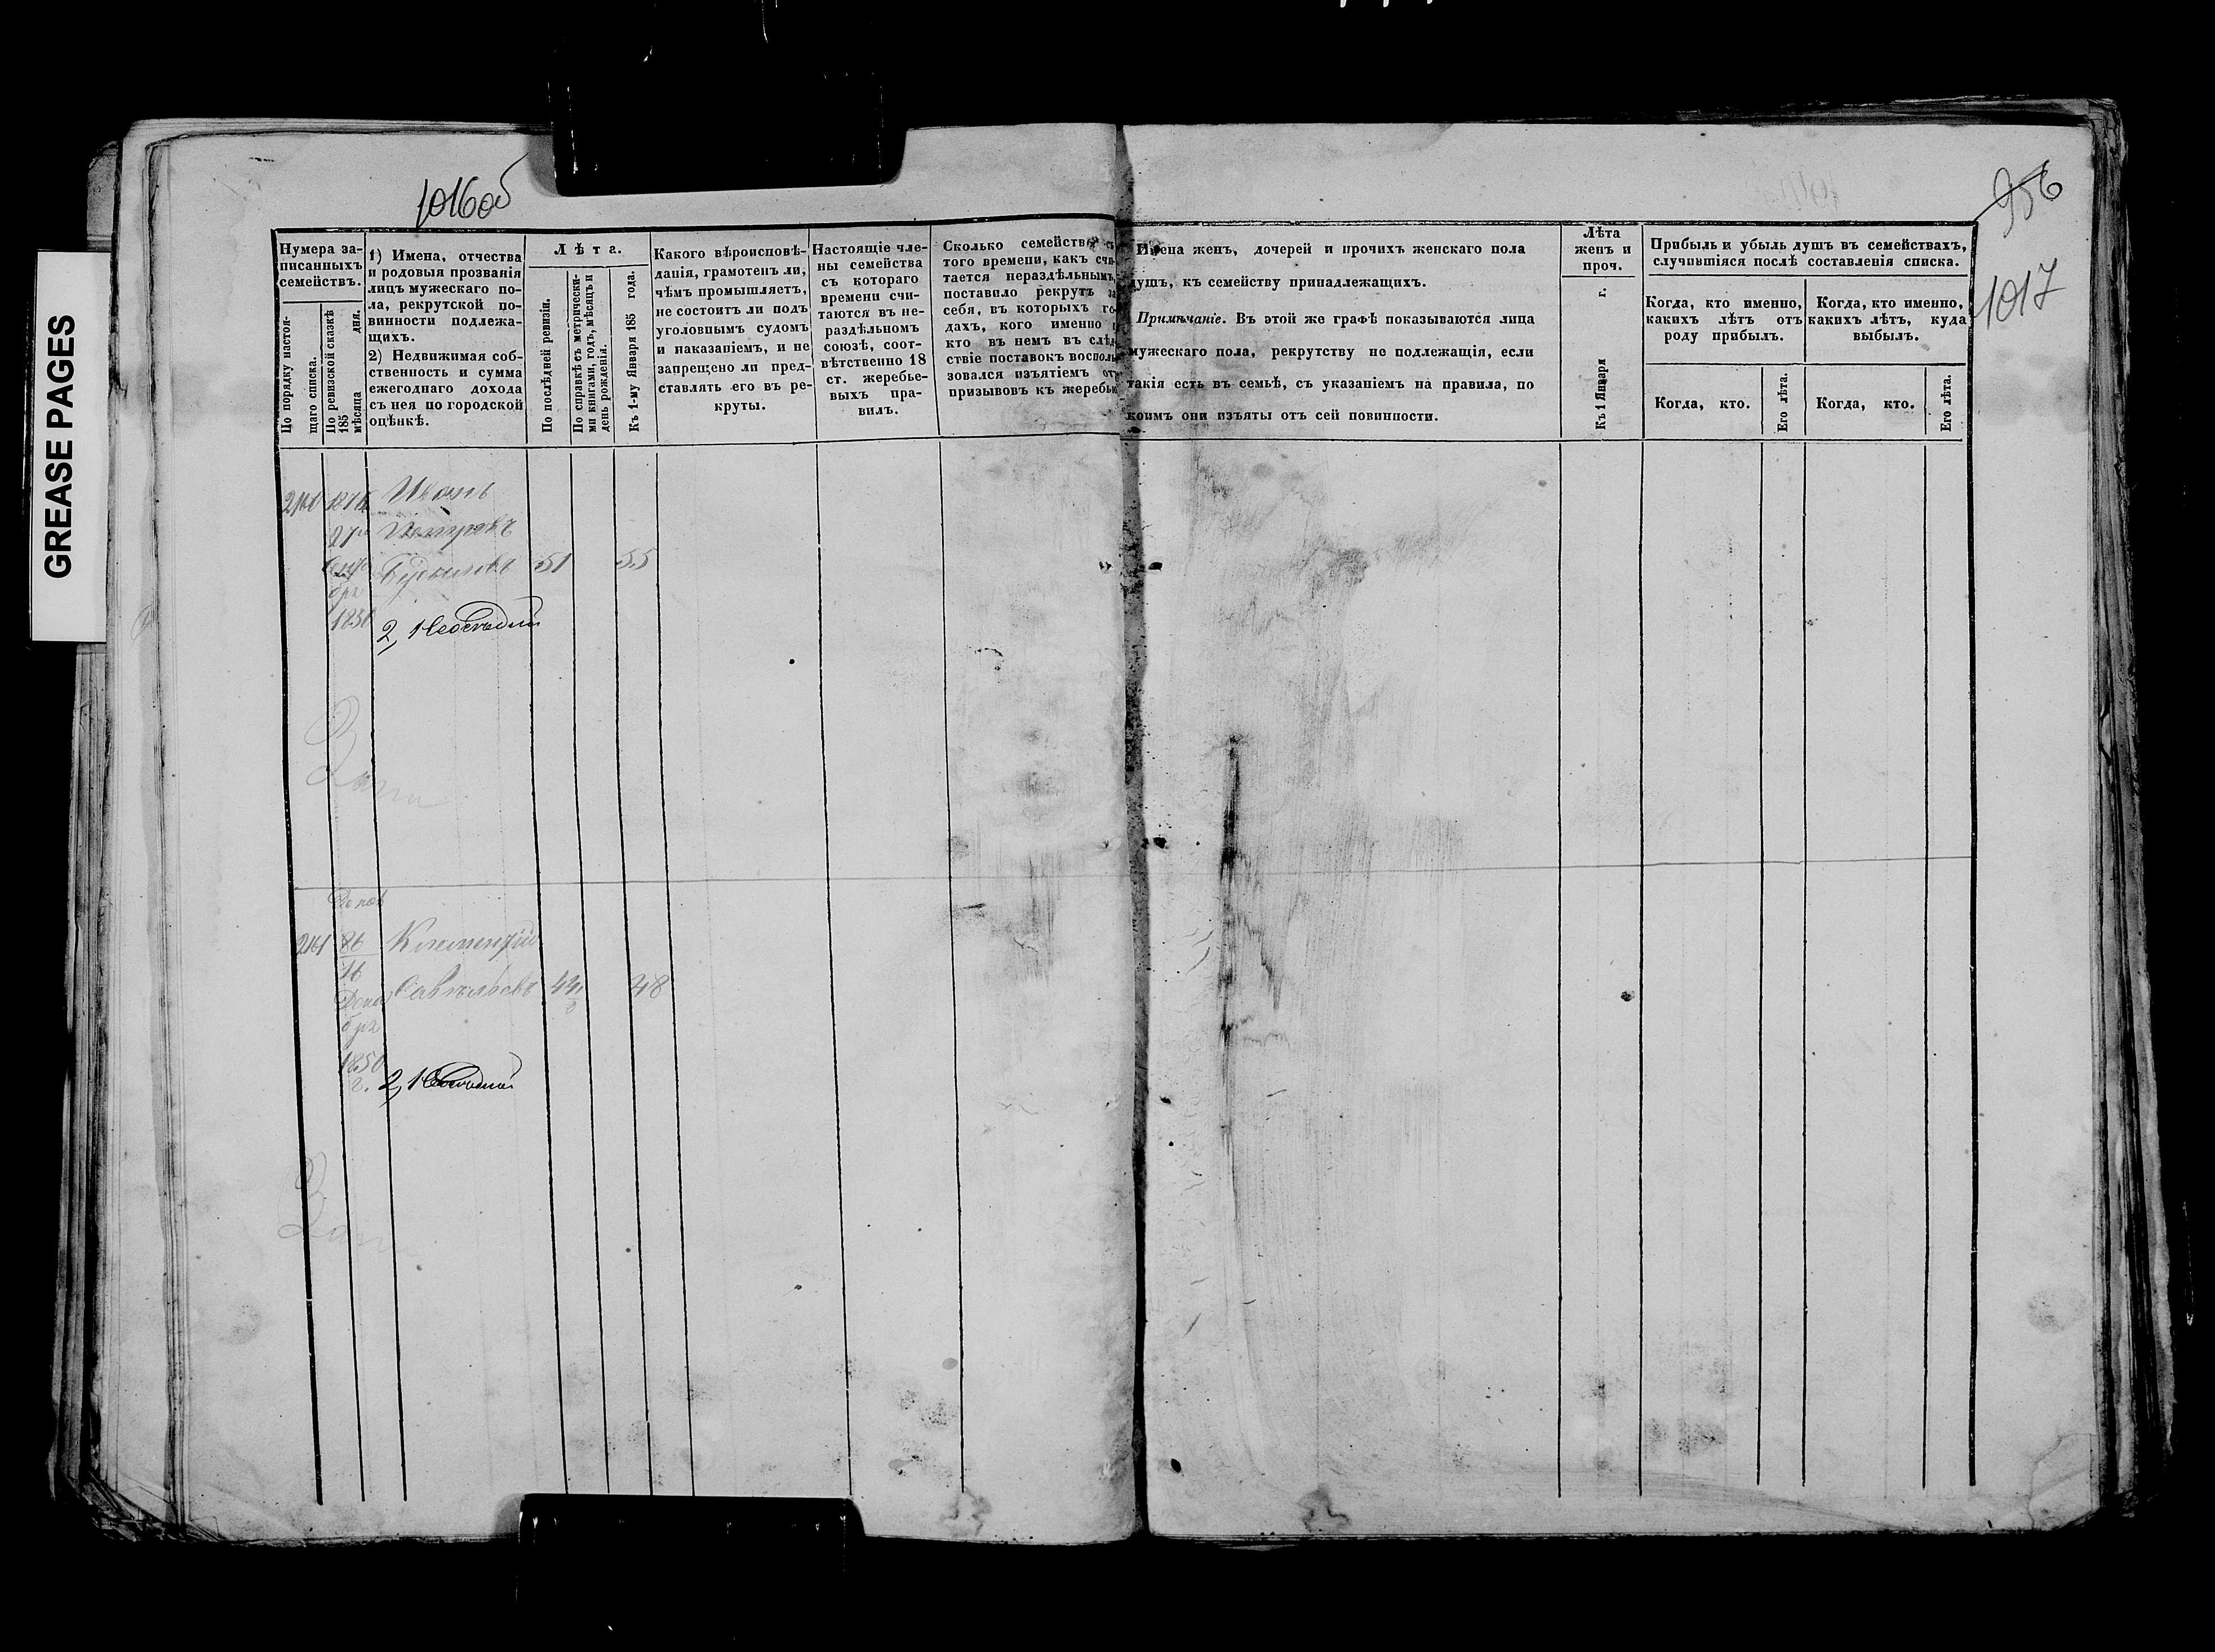 GREASE PAGES
1016об
956
1017
Нумера за-
писанныхъ
семействъ.
По порядку настоя-
щаго списка.
По ревизской сказкѣ
185 мѣсяца дня.
1) Имена, отчества
и родовыя прозванія
лицъ мужескаго по-
ла, рекрутской по-
винности подлежа-
щихъ.
2) Недвижимая соб-
ственность и сумма
ежегоднаго дохода
съ нея по городской
оцѣнкѣ.
Лѣта.
По послѣдней ревизіи.
По справкѣ съ метрически-
ми книгами, годъ, мѣсяцъ и
день рожденія.
Къ 1-му Января 185 года.
Какого вѣроисповѣ-
данія, грамотенъ ли,
чѣмъ промышляетъ,
не состоитъ ли подъ
уголовнымъ судомъ
и наказаніемъ, и не
запрещено ли пред-
ставлять его въ ре-
круты.
Настоящіе чле-
ны семейства
съ котораго
времени счи-
таются въ не-
раздѣльномъ
союзѣ, соот-
вѣтственно 18
ст. жеребье-
выхъ пра-
вилъ.
Сколько семейство съ
того времени, какъ счи-
тается нераздѣльнымъ,
поставило рекрутъ за
себя, въ которыхъ го-
дахъ, кого именно и
кто въ немъ въ слѣд-
ствіе поставокъ восполь-
зовался изъятіемъ отъ
призывовъ къ жеребью
Имена женъ, дочерей и прочихъ женскаго пола
душъ, къ семейству принадлежащихъ.
Примѣчаніе. Въ этой же графѣ показываются лица
мужескаго пола, рекрутству не подлежащія, если
такія есть въ семьѣ, съ указаніемъ на правила, по
коимъ они изъяты отъ сей повинности.
Лѣта
женъ и
проч.
Къ 1 Января г.
Прибыль и убыль душъ въ семействахъ,
случившіяся послѣ составленія списка.
Когда, кто именно,
какихъ лѣтъ отъ
роду прибылъ.
Когда, кто именно,
какихъ лѣтъ, куда
выбылъ.
Когда, кто.
Его лѣта.
Когда, кто.
Его лѣта.
2160 Иванъ
Петровъ
51 55
1850
2,
2161 86 Климентій
16
Савельевъ 48
Дека
бря
1850
г. 2,